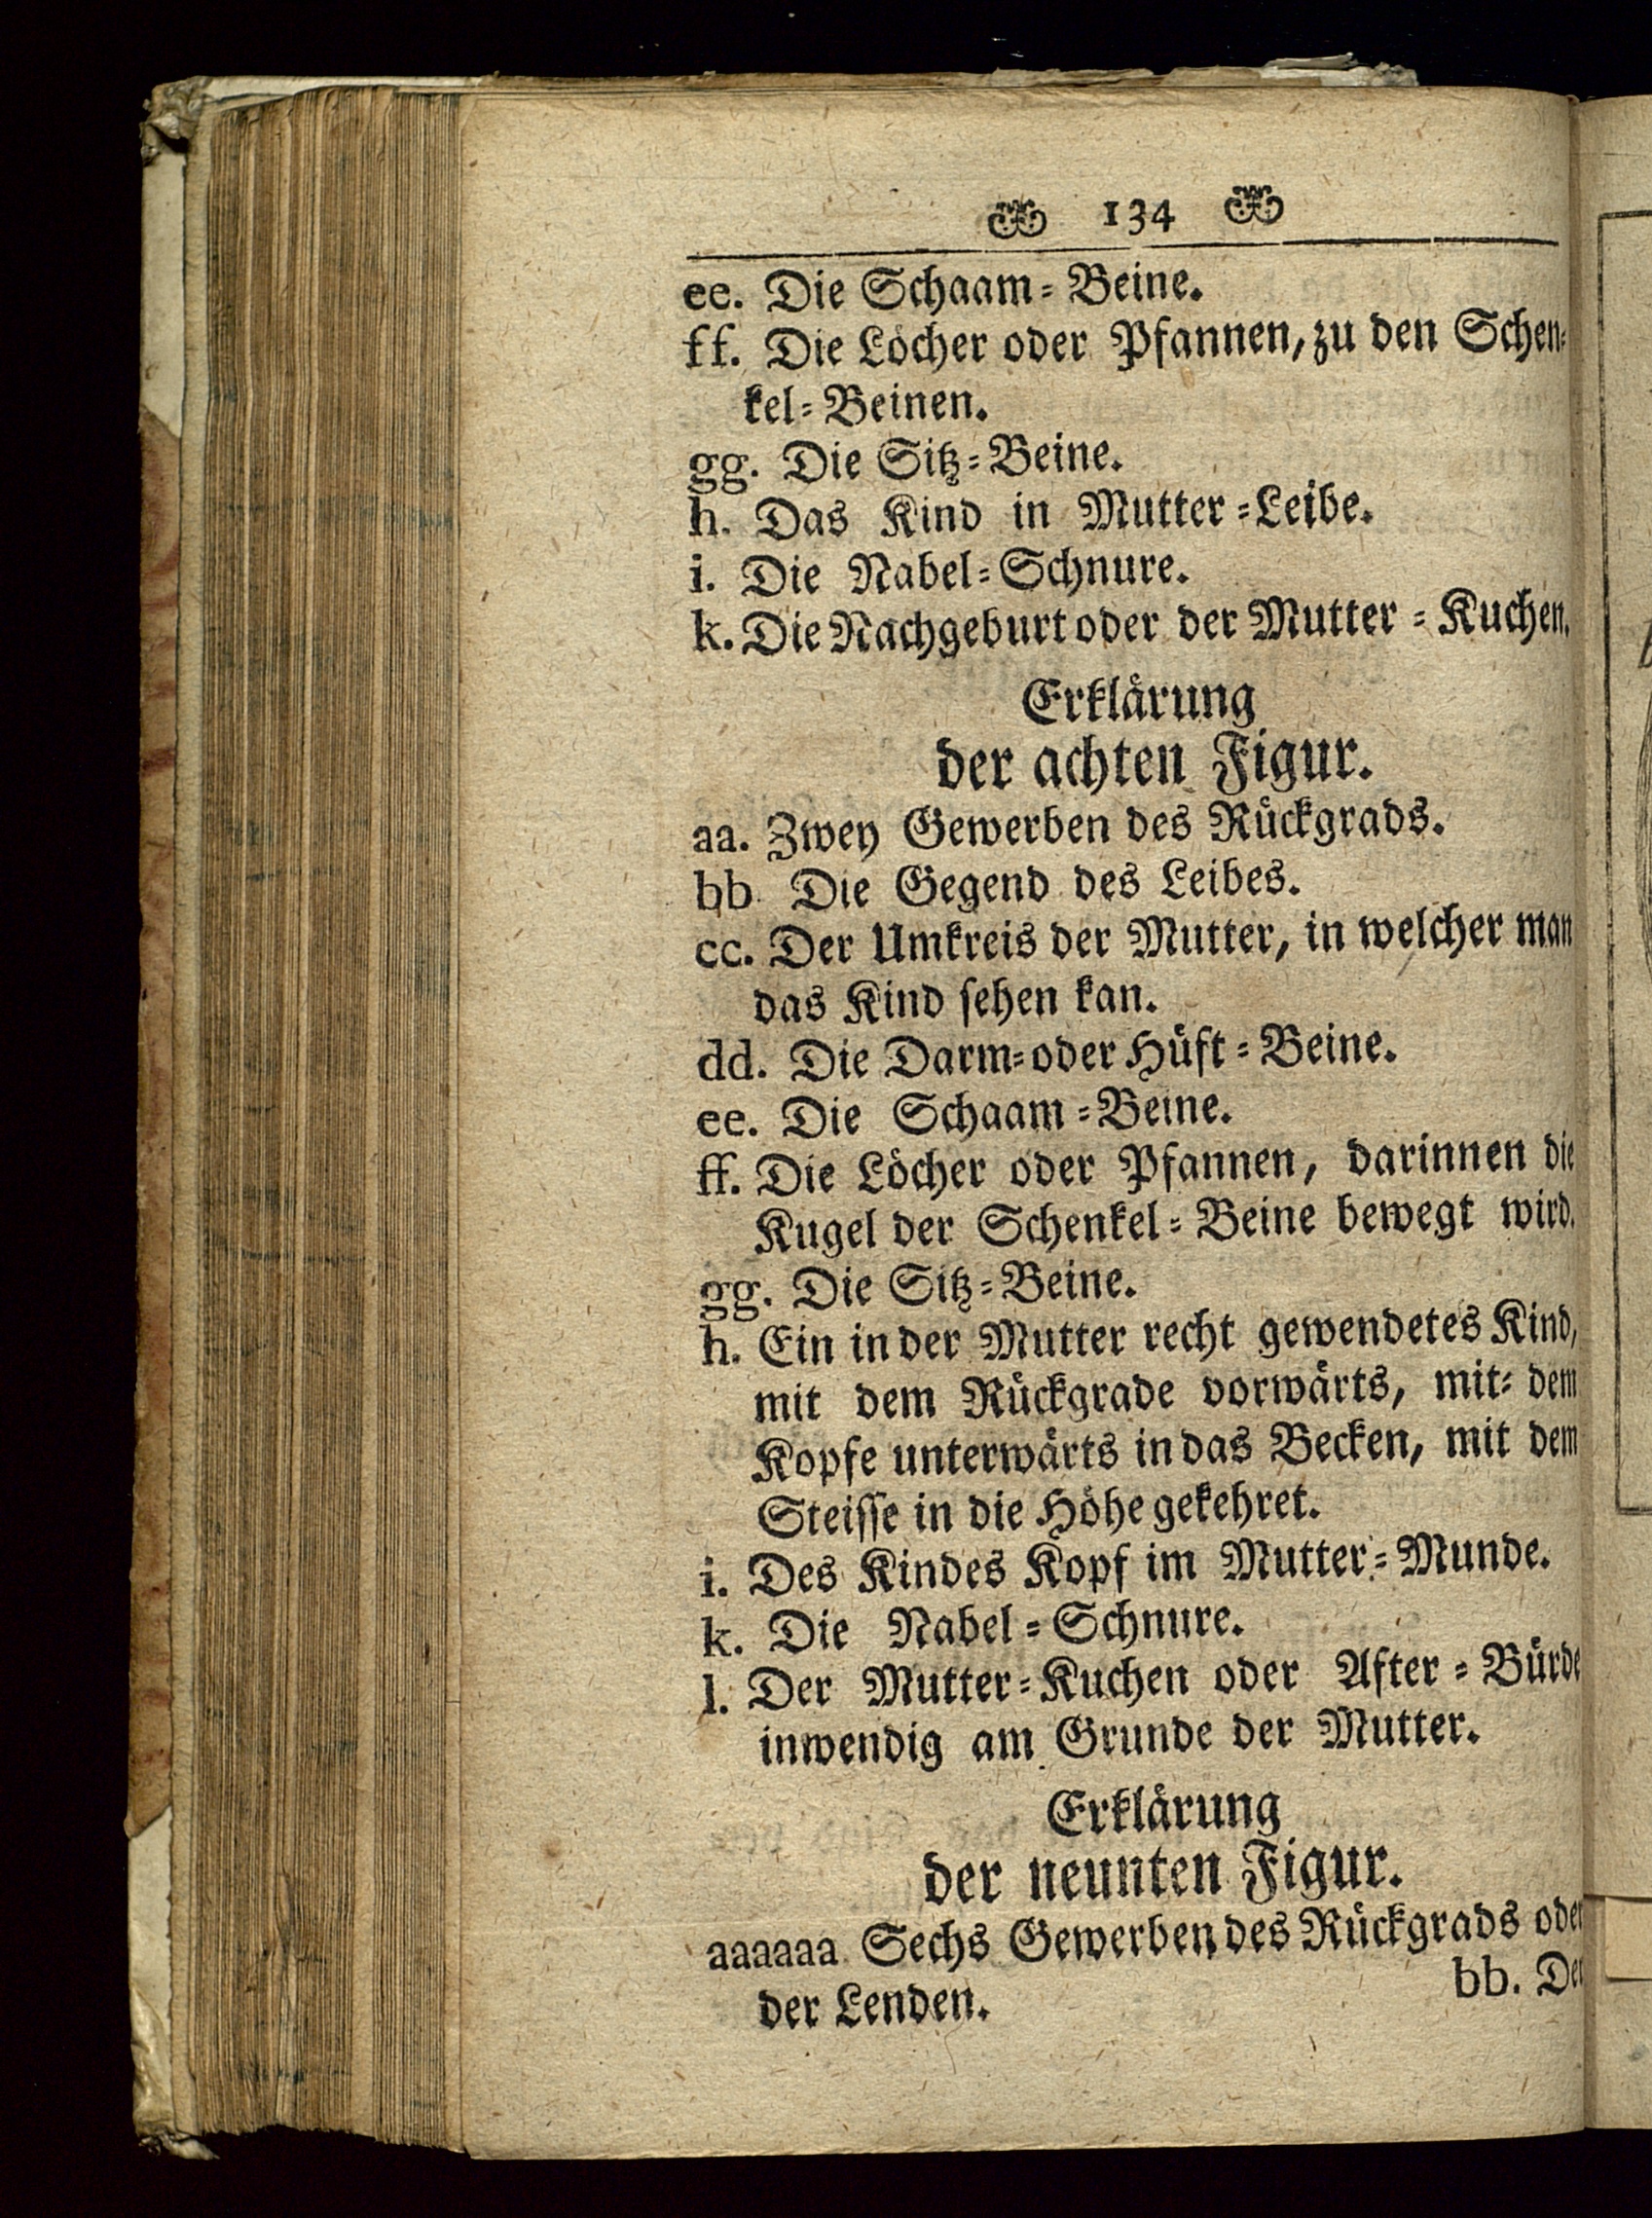 134
ee. Die Schaam-Beine.
ff. Die Löcher oder Pfannen, zu den Schen-
kel-Beinen.
gg. Die Sitz-Beine.
h. Das Kind in Mutter-Leibe.
i. Die Nabel-Schnure.
k. Die Nachgeburt oder der Mutter-Kuchen.
Erklärung
der achten Figur.
aa. Zwey Gewerben des Rückgrads.
bb. Die Gegend des Leibes.
cc. Der Umkreis der Mutter, in welcher man
das Kind sehen kan.
dd. Die Darm-oder Hüft-Beine.
ee. Die Schaam-Beine.
ff. Die Löcher oder Pfannen, darinnen die
Kugel der Schenkel-Beine bewegt wird.
gg. Die Sitz-Beine.
h. Ein in der Mutter recht gewendetes Kind,
mit dem Rückgrade vorwärts, mit- dem
Kopfe unterwärts in das Becken, mit dem
Steisse in die Höhe gekehret.
i. Des Kindes Kopf im Mutter-Munde.
k. Die Nabel-Schnure.
l. Der Mutter-Kuchen oder After-Bürde
inwendig am Grunde der Mutter.
Erklärung
der neunten Figur.
aaaaaa Sechs Gewerben des Rückgrads oder
der Lenden.
bb. Der